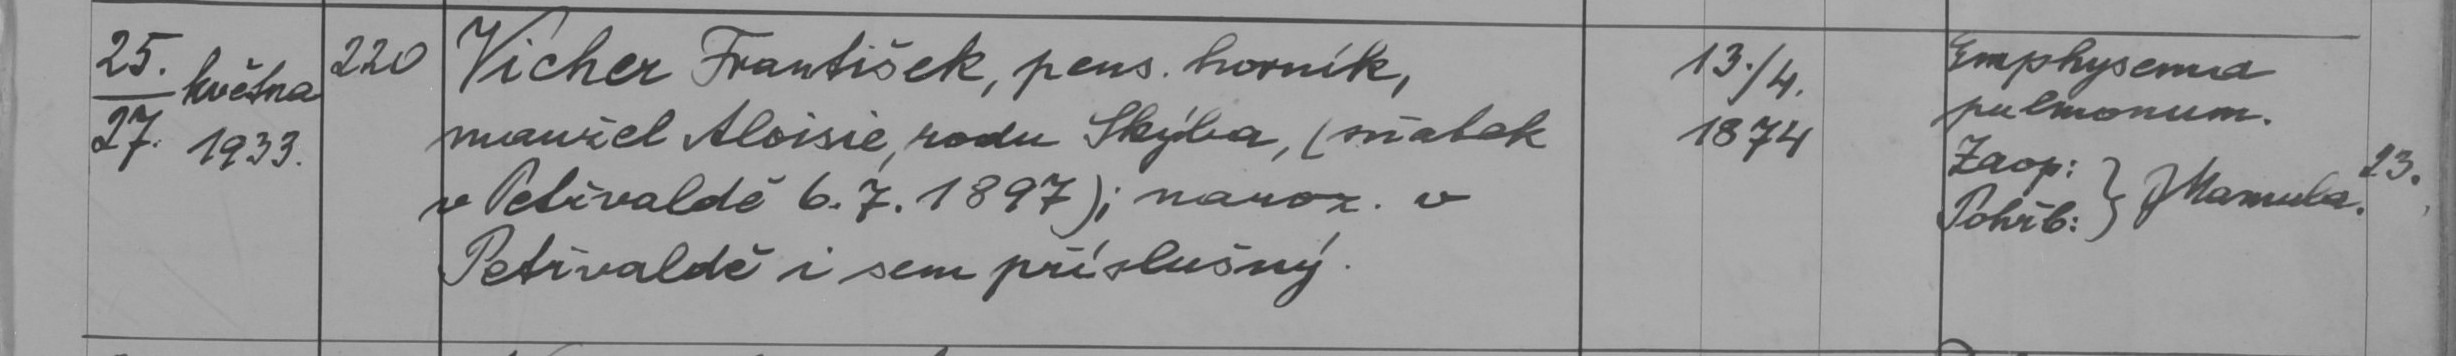 25. května 220 Vicher František, pens. horník, 13./4. Emphysema
27. 1933. manžel Aloisie, rodu Skýba, (sňatek 1874 pulmonum.
v Petřvaldě 6.7.1897); naroz. v Zaop: } 23.
Petřvaldě i sem příslušný. Pohřb: }